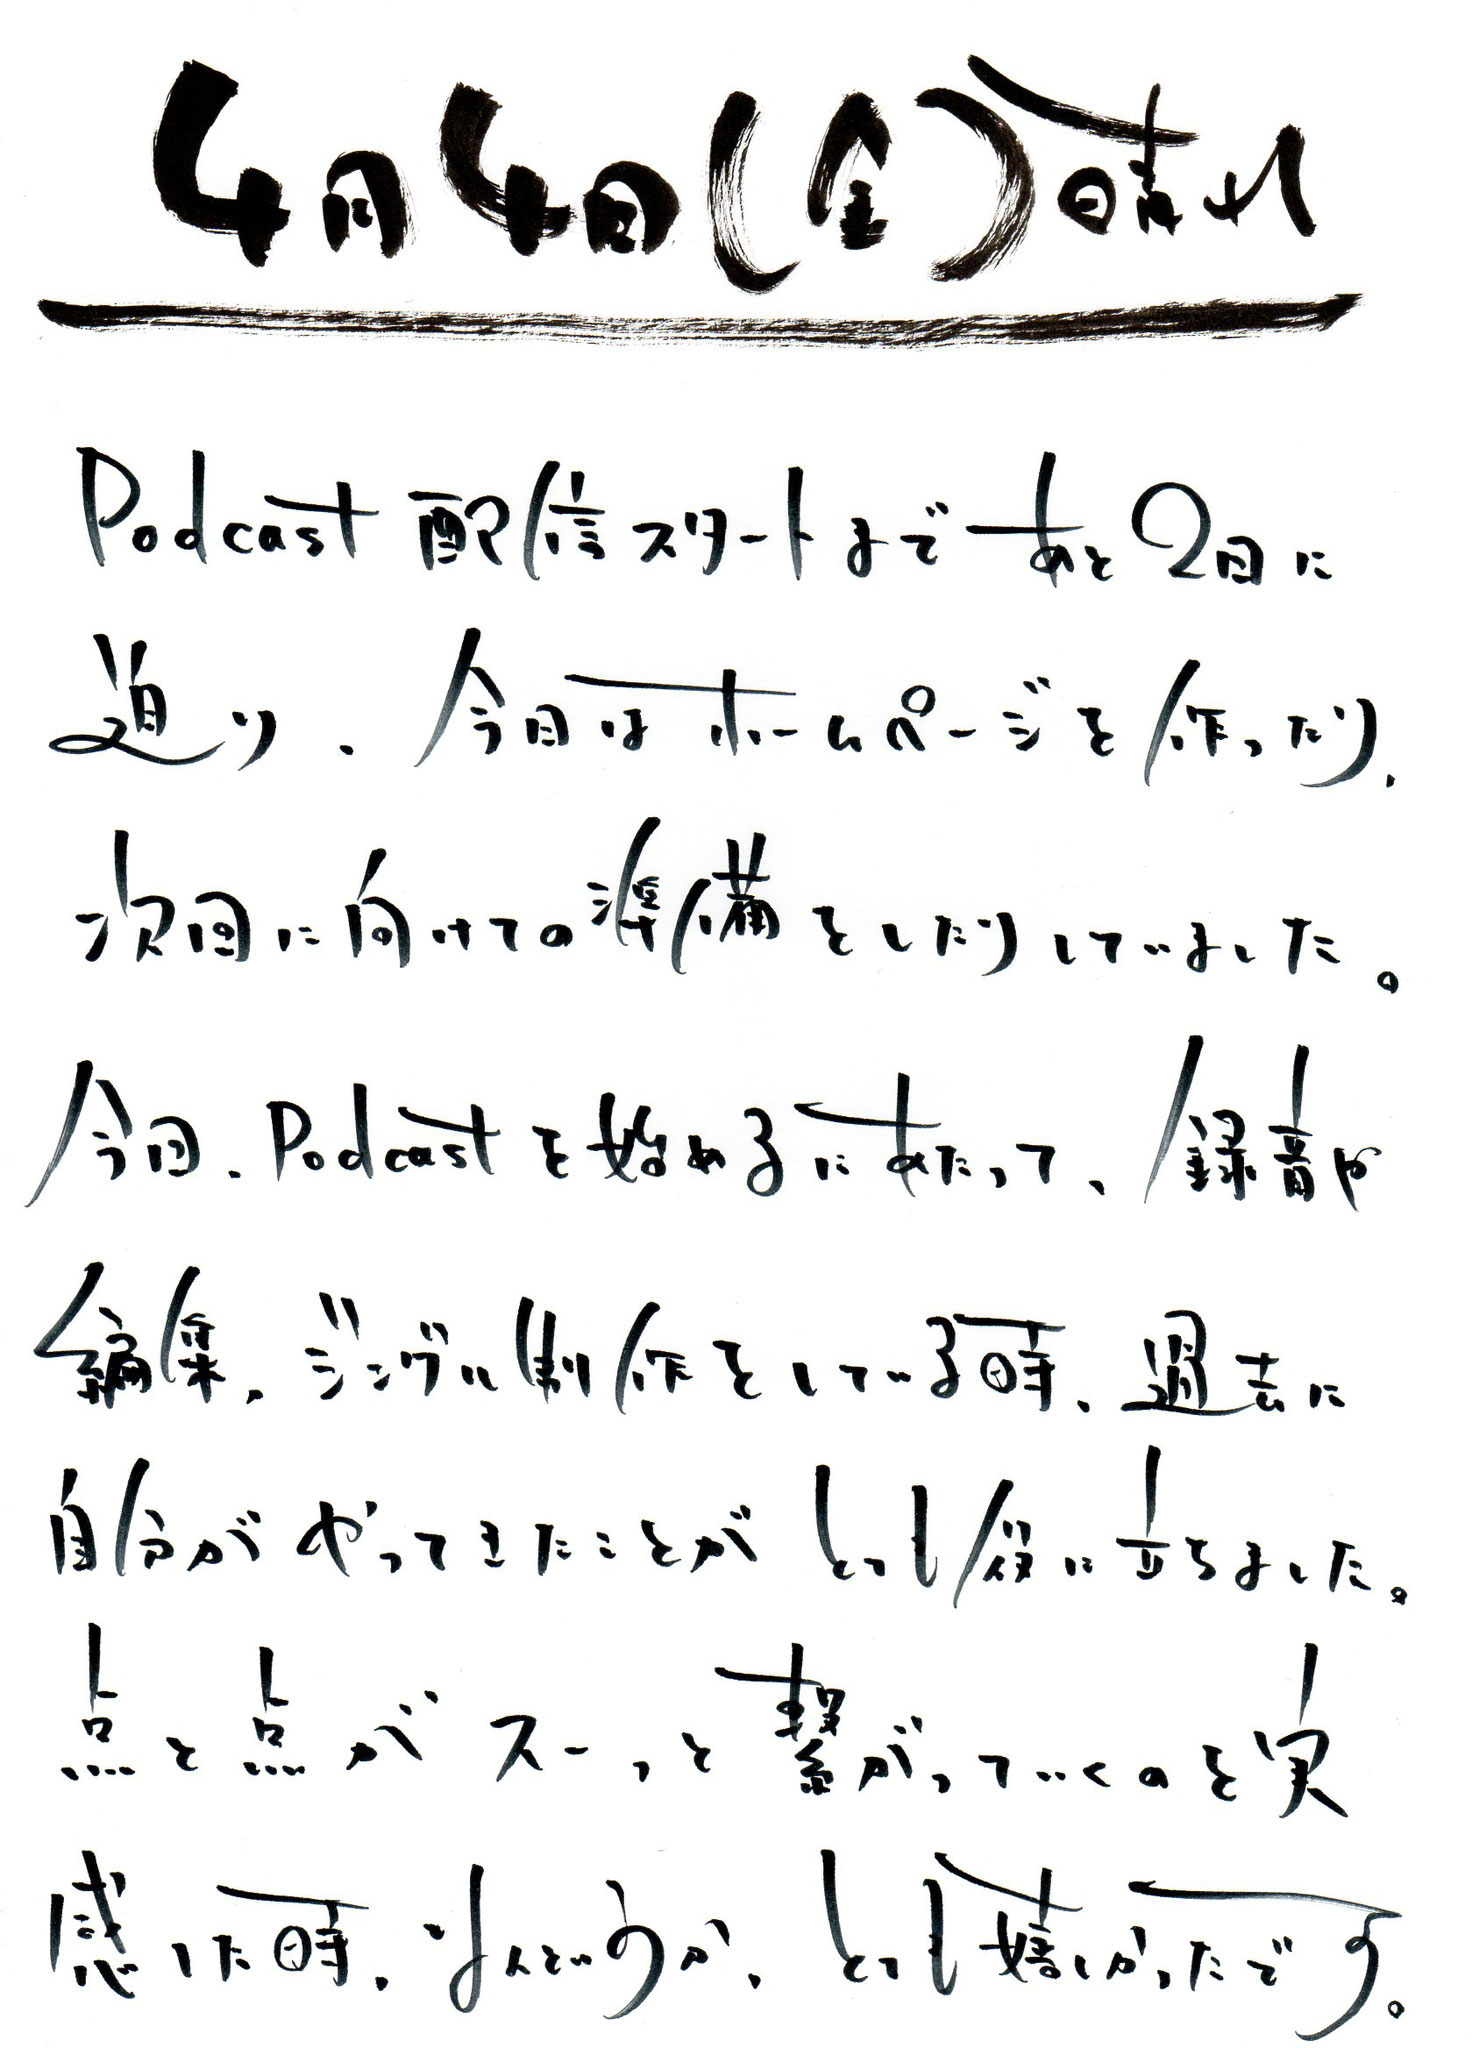 4月4日(金)晴れ
Podcast配信スタートまであと2日に
迫り、今日はホームページを作ったり、
次回に向けての準備をしたりしていました。
今回、Podcastを始めるにあたって、録音や
編集、ジングル制作をしている時、過去に
自分がやってきたことがとっても役に立ちました。
点と点がスーっと繋がっていくのを実
感した時、なんというか、とっても嬉しかったです。